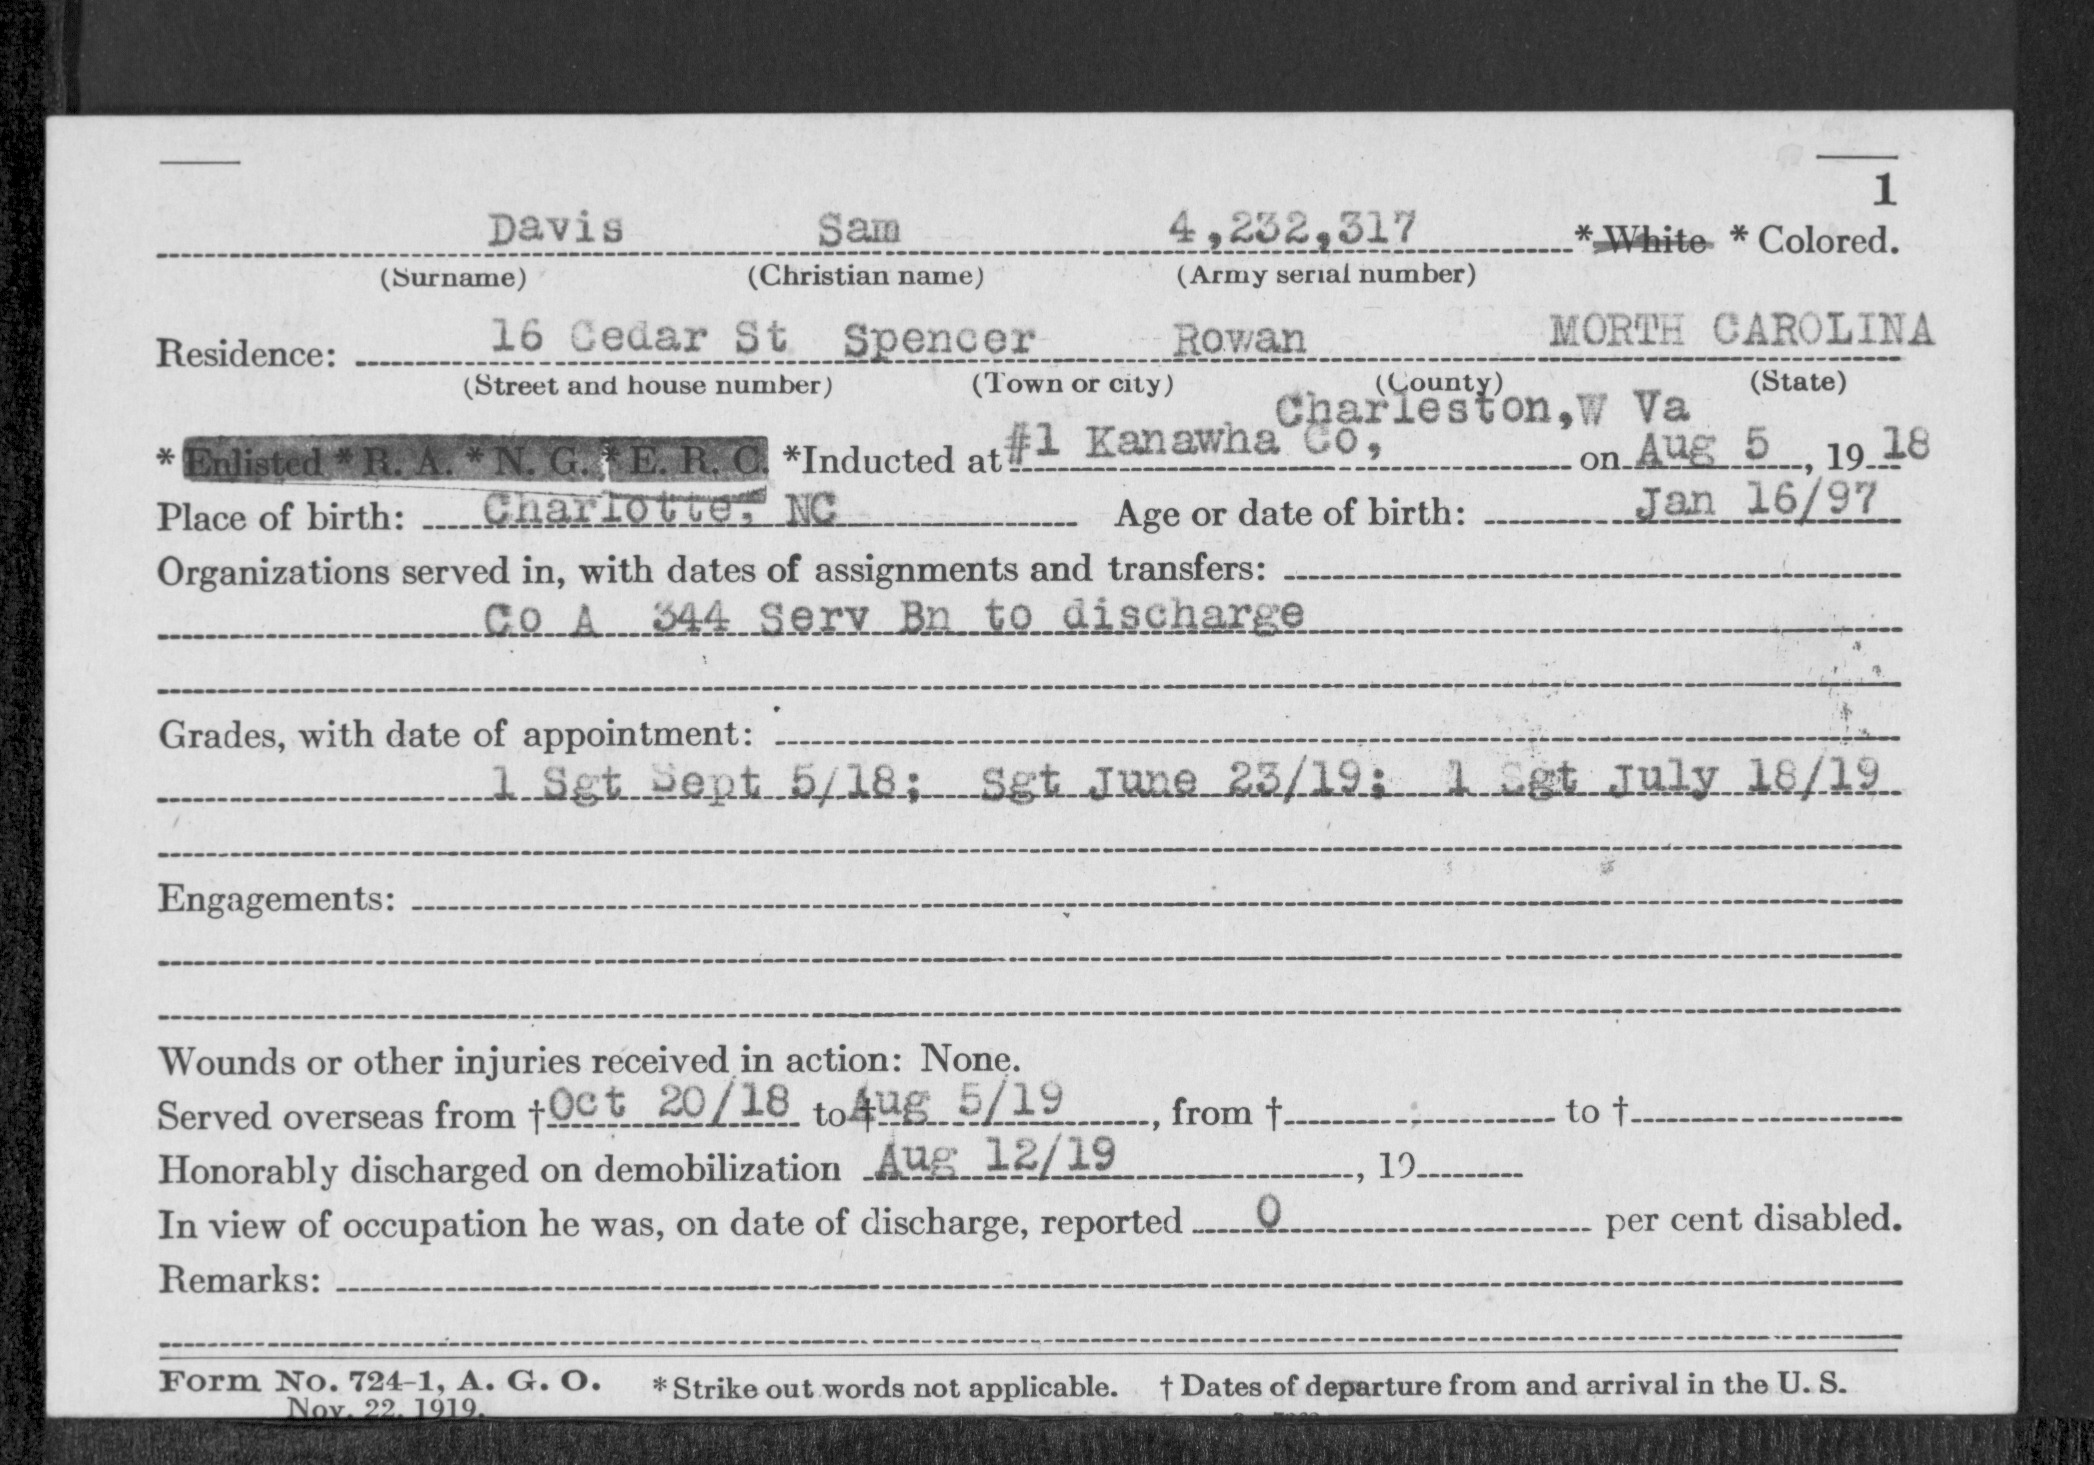 1
Davis Sam 4,232,317 * White * Colored.
(Surname) (Christian name) (Army serial number)
Residence: 16 Cedar St Spencer Rowan MORTH CAROLINA
(Street and house number) (Town or city) (County) (State)
Charleston,W Va
* Enlisted * R. A. * N. G. * E. R. C. *Inducted at #1 Kanawha Co, on Aug 5, 19 18
Place of birth: Charlotte, NC Age or date of birth: Jan 16/97
Organizations served in, with dates of assignments and transfers:
Co A 344 Serv Bn to discharge
Grades, with date of appointment:
1 Sgt Sept 5/18; Sgt June 23/19; 1 Sgt July 18/19
Engagements:
Wounds or other injuries received in action: None.
Served overseas from † Oct 20/18 to † Aug 5/19, from † to †
Honorably discharged on demobilization Aug 12/19, 19
In view of occupation he was, on date of discharge, reported 0 per cent disabled.
Remarks:
Form No. 724-1, A. G. O. * Strike out words not applicable. † Dates of departure from and arrival in the U. S.
Nov. 22, 1919.